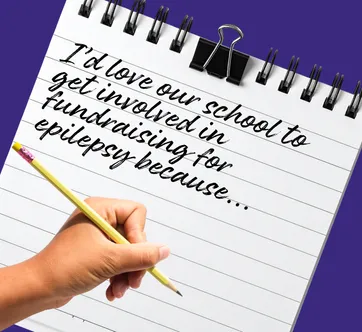 I'd love our school to
get involved in
fundraising for
epilepsy because...